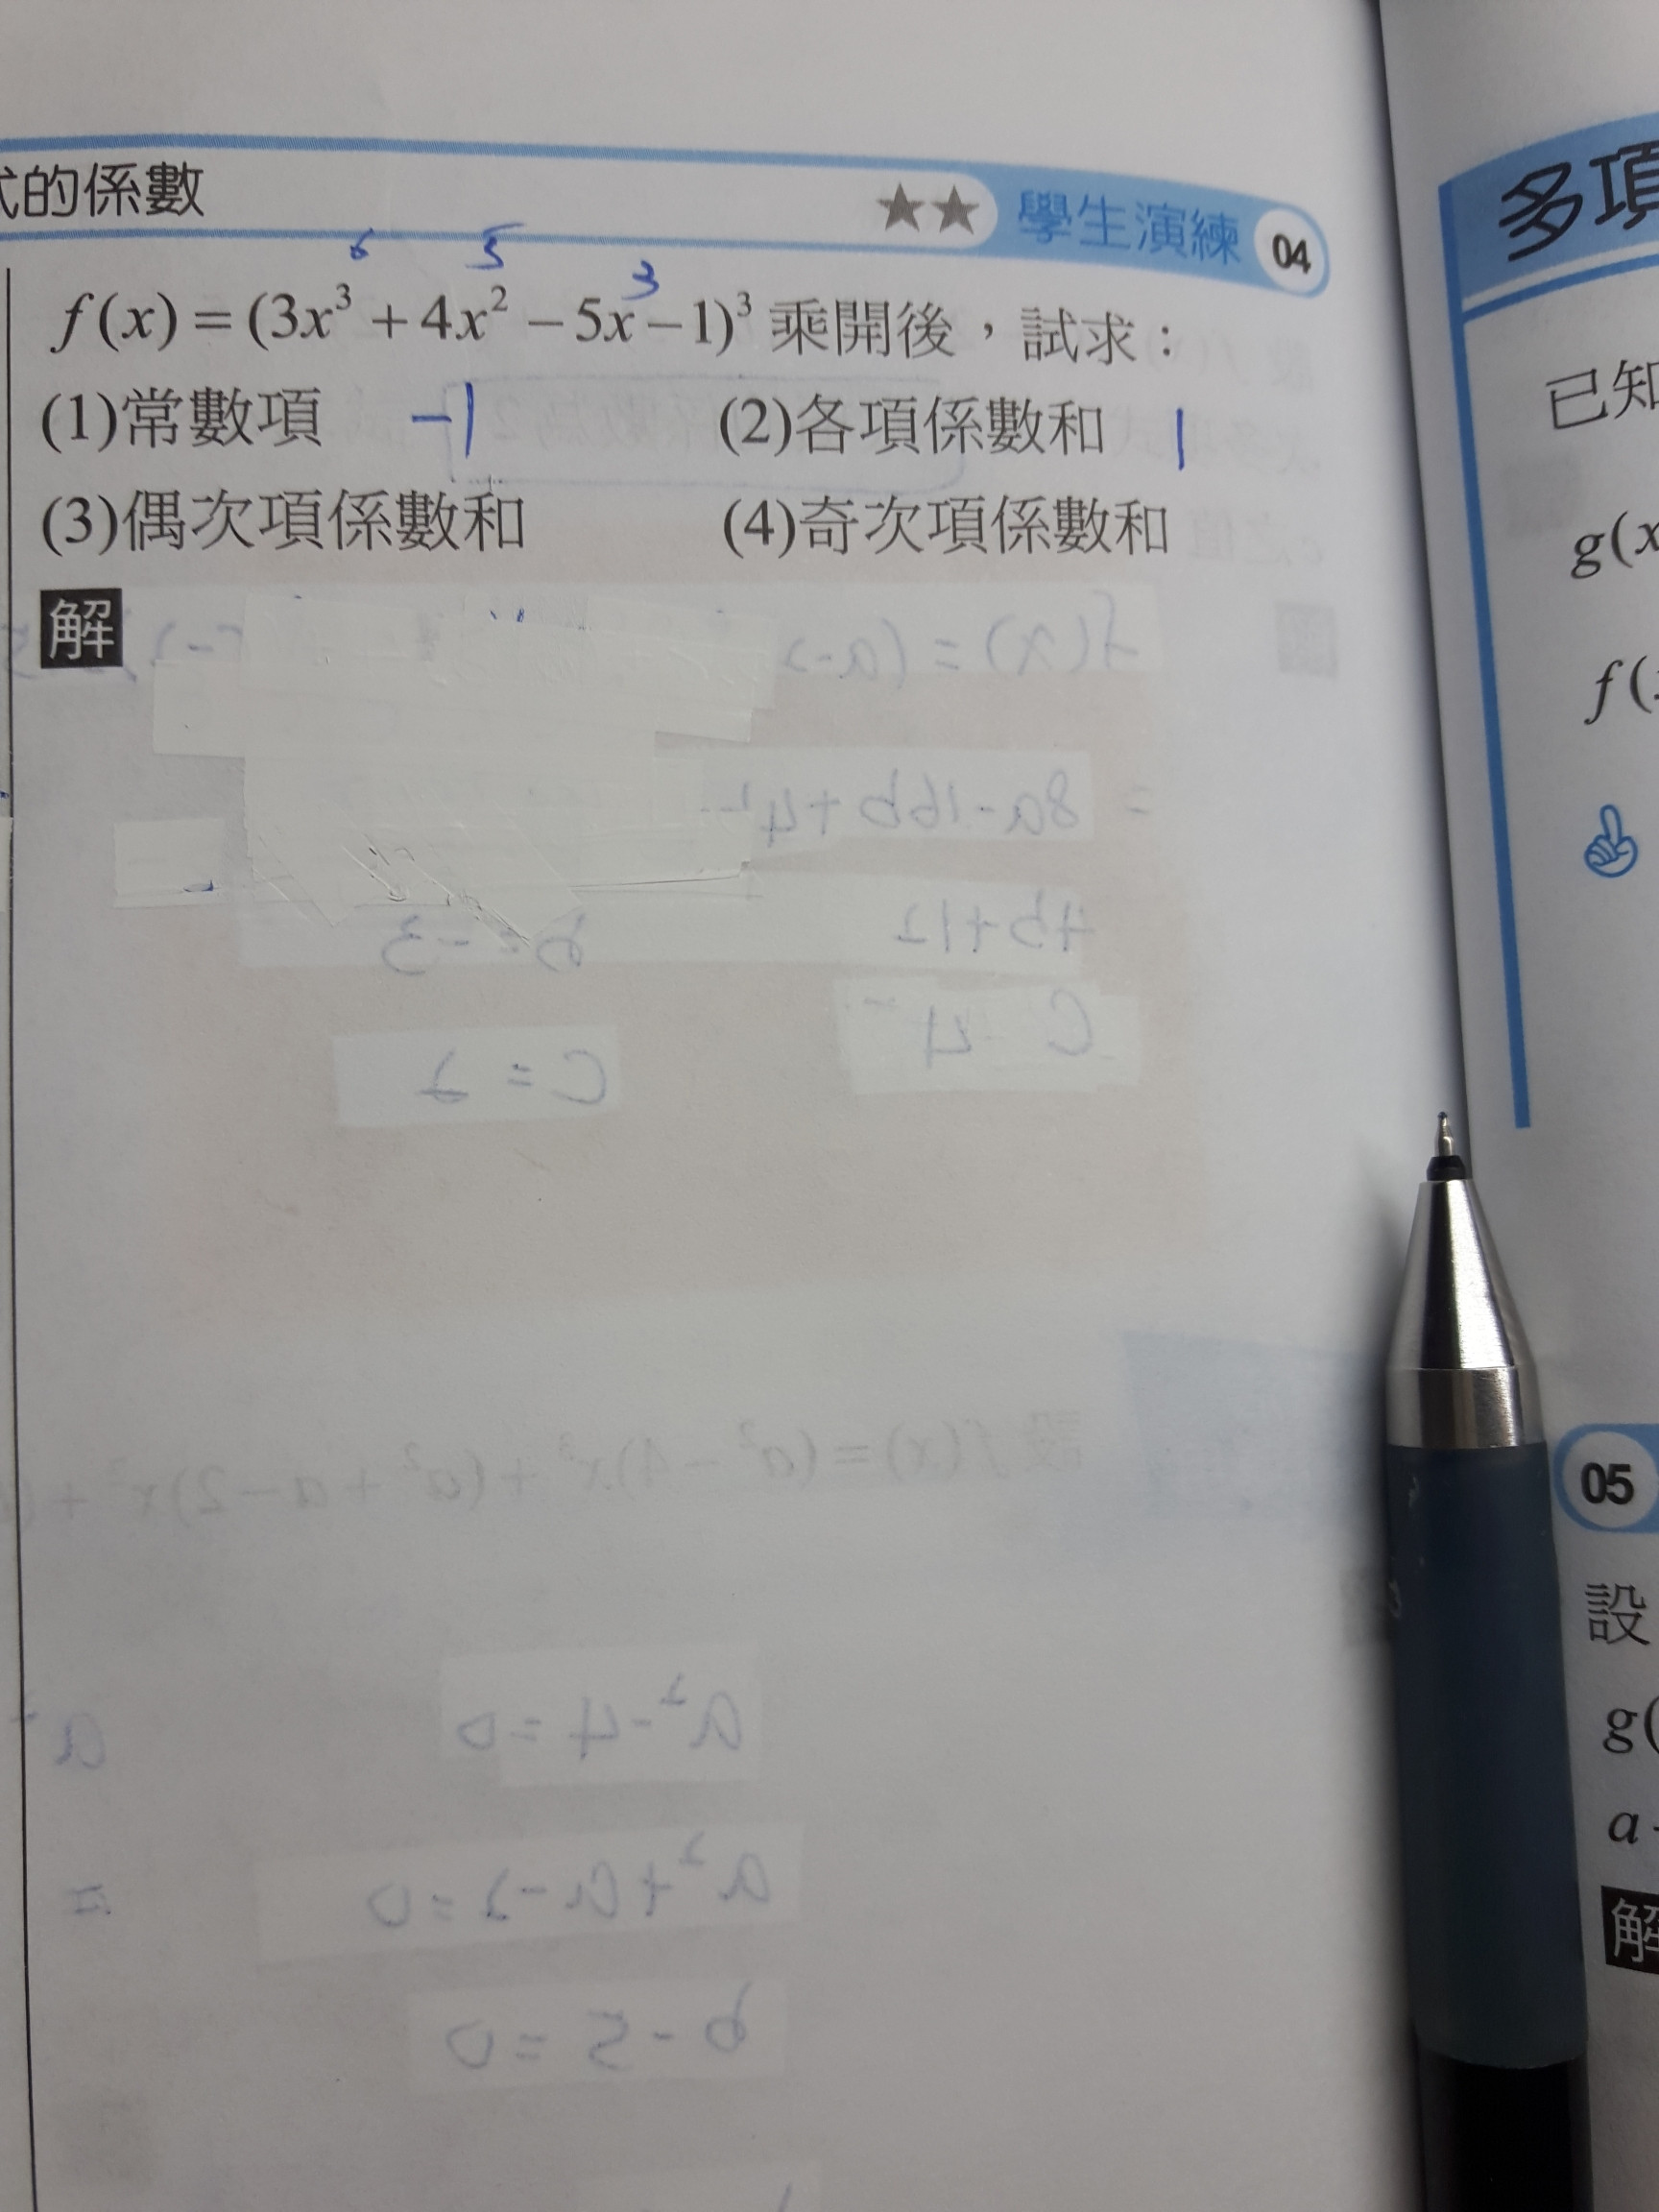 式的係數 ★★ 學生演練 04
6 5 3
f(x) = (3x³ + 4x² − 5x − 1)³ 乘開後，試求：
(1)常數項 −1 (2)各項係數和 1
(3)偶次項係數和 (4)奇次項係數和
解
多項
已知
g(x
f(
05
設
g(
a
解